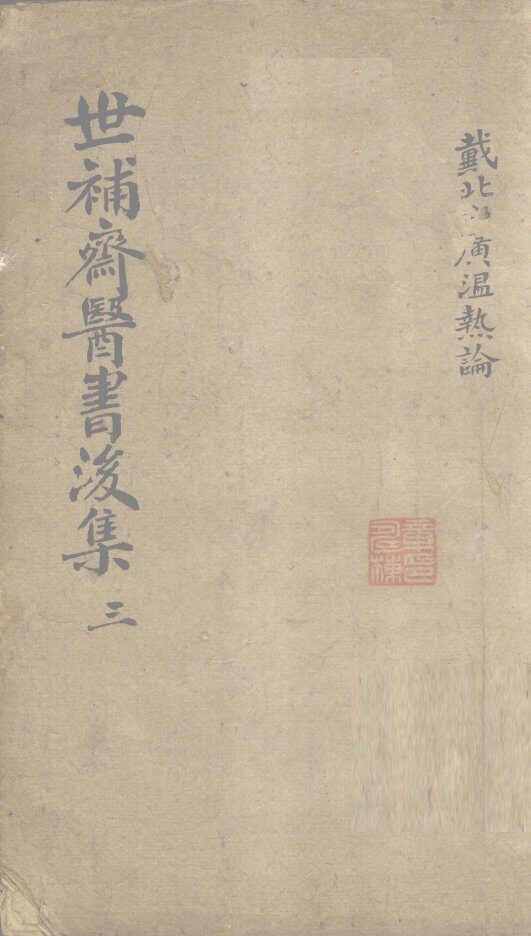 戴北廣温熱論
世補齋醫書後集 三